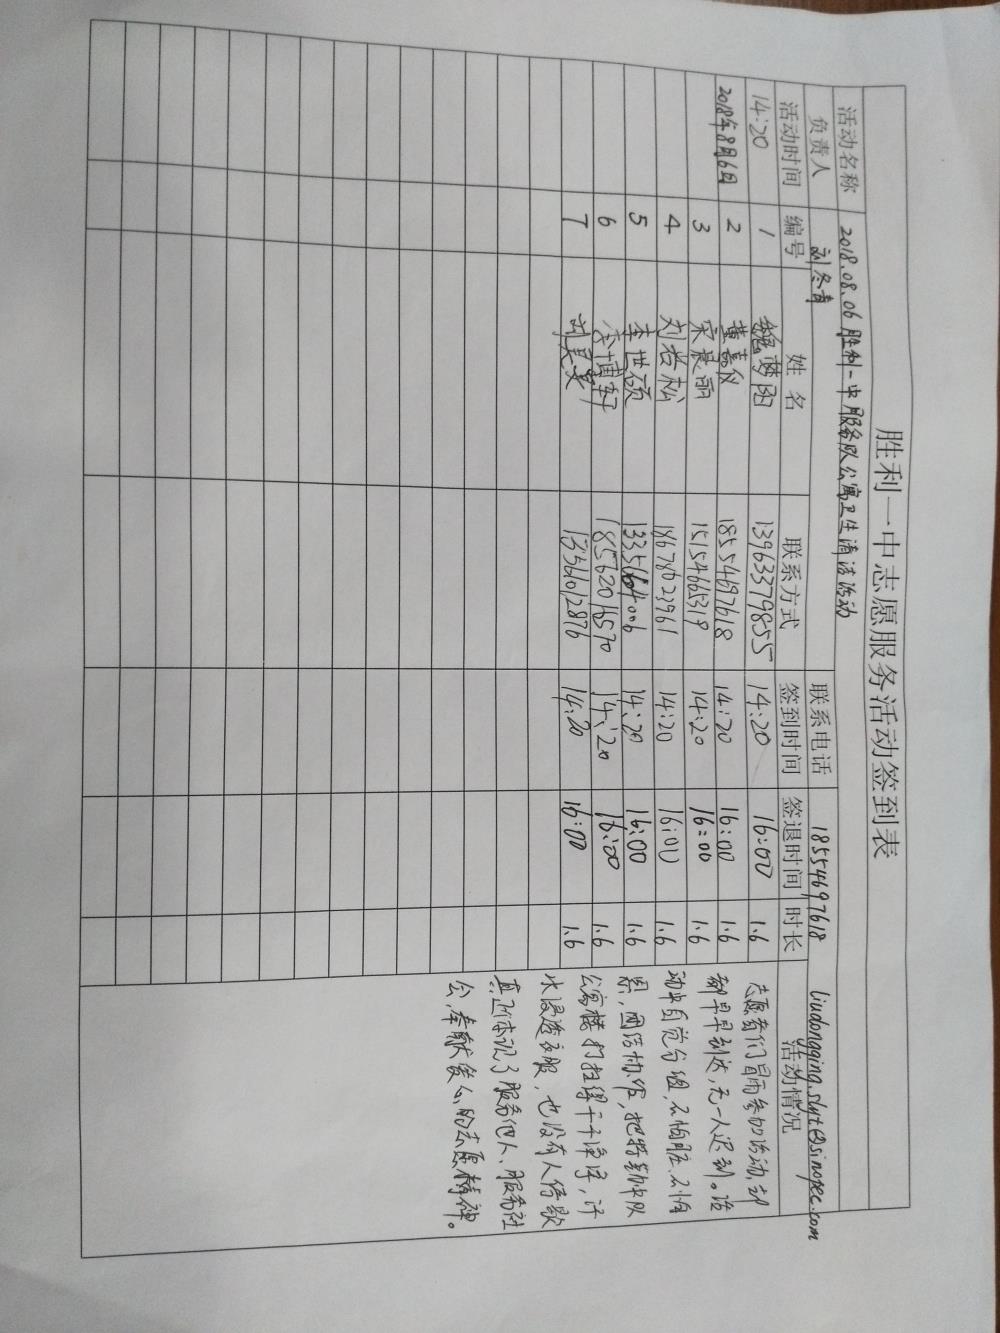 胜利一中志愿服务活动签到表
活动名称 2018.08.06胜利一中服务队公寓卫生清洁活动
负责人 刘冬青 联系电话 18554697618 liudongqing.slyt@sinopec.com
活动时间 编号 姓名 联系方式 签到时间 签退时间 时长 活动情况
14:20 1 魏梦阳 13963379855 14:20 16:00 1.6 志愿者们冒雨参加活动,却
2018年8月6日 2 黄嘉仪 18554697618 14:20 16:00 1.6 都早早到达,无一人迟到。活
3 宋晨丽 15154665319 14:20 16:00 1.6 动中自觉分组,不怕脏、不怕
4 刘岩松 18678023961 14:20 16:00 1.6 累,团结协作,把
5 李世硕 14:20 16:00 1.6 公寓楼打扫得干干净净,汗
6 李博轩 18562018570 14:20 16:00 1.6 水浸透衣服,也没有人停歇
7 刘昊昊 13561012876 14:20 16:00 1.6 真正体现了服务他人、服务社
会,奉献爱心的志愿精神。